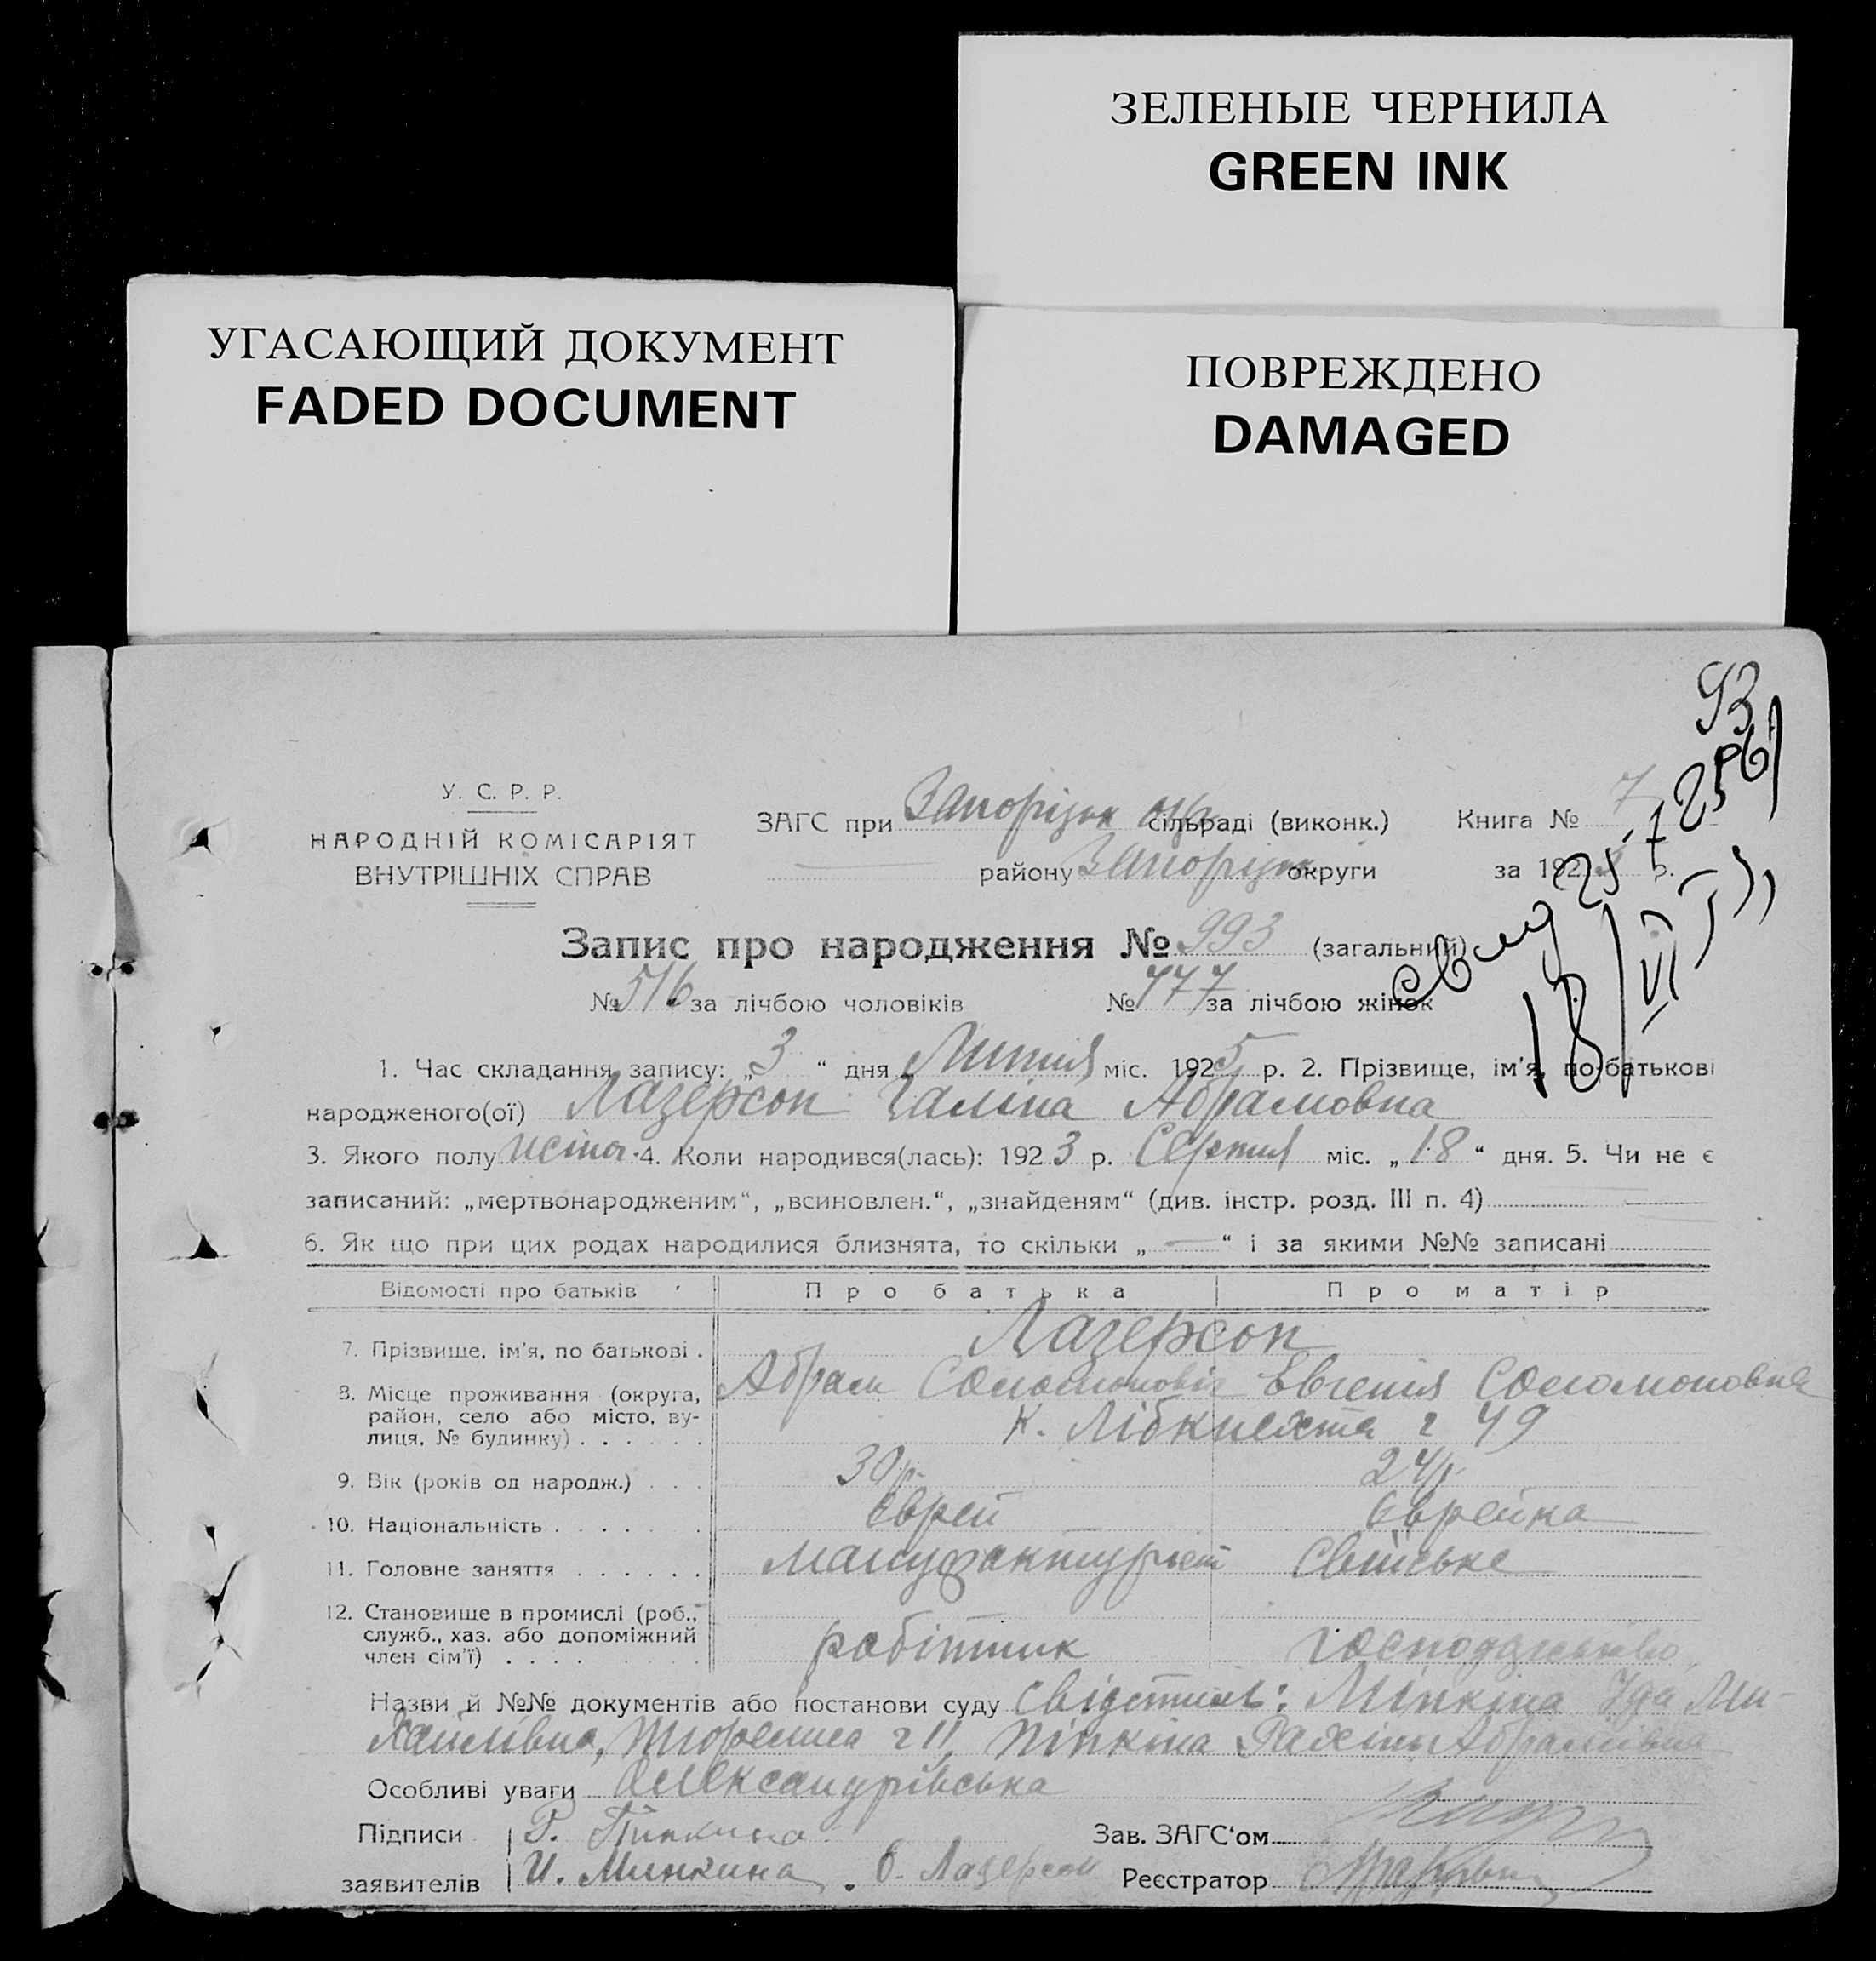 ЗЕЛЕНЫЕ ЧЕРНИЛА
GREEN INK
УГАСАЮЩИЙ ДОКУМЕНТ
FADED DOCUMENT
ПОВРЕЖДЕНО
DAMAGED
93
У. С. Р. Р.
НАРОДНІЙ КОМІСАРІЯТ
ВНУТРІШНІХ СПРАВ
ЗАГС при Запорізьк сільраді (виконк.) Книга № 7
району Запорізьк округи за 192 р.
Запис про народження № 993 (загальний)
№ 516 за лічбою чоловіків № 477 за лічбою жінок
18/VI
1. Час складання запису: „3“ дня Липня міс. 1925 р. 2. Прізвище, ім'я, по-батькові
народженого(ої) Лазерсон Галіна Абрамовна
3. Якого полу жіноч. 4. Коли народився(лась): 1923 р. Серпня міс. „18“ дня. 5. Чи не є
записаний: „мертвонародженим“, „всиновлен.“, „знайденям“ (див. інстр. розд. III п. 4)
6. Як що при цих родах народилися близнята, то скільки „—“ і за якими №№ записані
Відомості про батьків Про батька Про матір
7. Прізвище, ім'я, по батькові . Лазерсон
Абрам Соломонович Евгенія Соломоновна
8. Місце проживання (округа, район, село або місто, вулиця, № будинку) К. Лібкнехта 49
9. Вік (років од народж.) 30 р. 24 р.
10. Національність Єврей Єврейка
11. Головне заняття Мануфактурист Свійське
12. Становище в промислі (роб., служб., хаз. або допоміжний член сім'ї) робітник господарство
Назви й №№ документів або постанови суду Свідотки: Мінкіна Іда Ми-
хайлівна, 11, Піпкіна Абрамівна
Особливі уваги Олександрівська
Підписи Р. Пипкина Зав. ЗАГС'ом
заявителів И. Минкина. Лазерсон Реєстратор